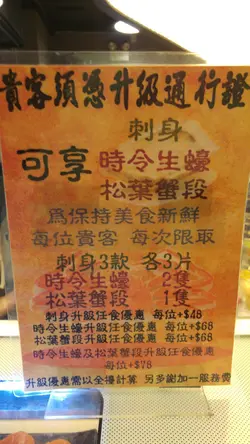 貴客須憑升級通行證
刺身
可享 時令生蠔
松葉蟹段
為保持美食新鮮
每位貴客 每次限取
刺身3款 各3片
時令生蠔 2隻
松葉蟹段 1隻
刺身升級任食優惠 每位+$48
時令生蠔升級任食優惠 每位+$68
松葉蟹段升級任食優惠 每位+$68
時令生蠔及松葉蟹段升級任食優惠
每位+$78
升級優惠需以全檯計算 另多謝加一服務費